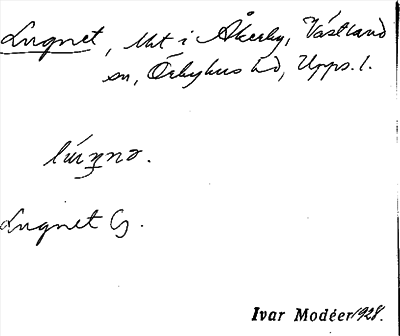 Lugnet, lht i Åkerby, Västland
sn, Örbyhus hd, Upps. l.
Lugnet G.
Ivar Modéer 1928.